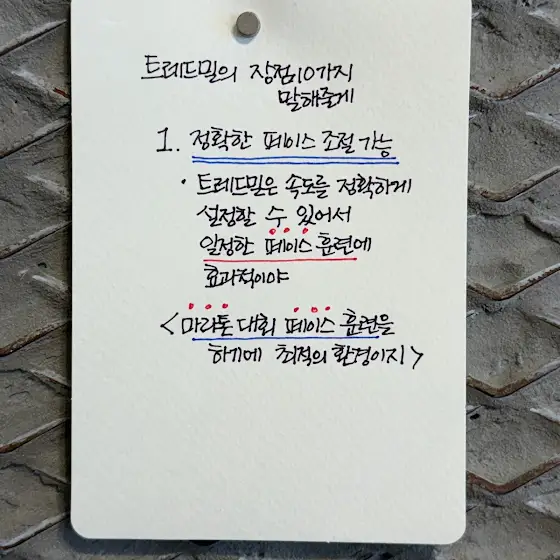 트레드밀의 장점10가지
말해줄게
1. 정확한 페이스 조절 가능
· 트레드밀은 속도를 정확하게
설정할 수 있어서
일정한 페이스 훈련에
효과적이야
<마라톤 대회 페이스 훈련을
하기에 최적의 환경이지>